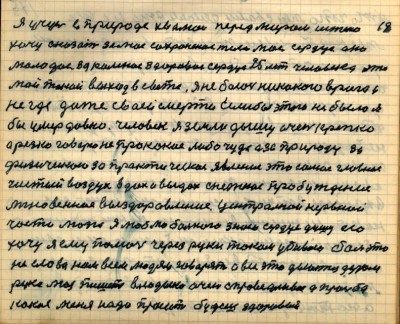 Я учусь в природе хвалюсь перед миром истино 68
хочу сказать за мое сохраненое тело мое сердце оно
молодое закаленое здоровое сердце 25 лет человека это
мой такой выход в свете, я не боюсь никакого врага
не где даже своей смерти если бы этого не было я
бы умер давно. человек я земли дышу очень крепко
а резко говорю не про какое либо чудо а за природу за
физическое за практическое явление это самое главное
чистый воздух вдох и выдох снежное пробуждение
мгновенное выздоровление центральной нервной
части мозга Я люблю больного знаю сердце душу его
хочу я ему помоч через руки током убиваю боль это
не слова нам всем людям говорят о все это делается делом
рука моя пишет владыка очень справедливая о просьбе
какая меня надо просить будешь здоровый